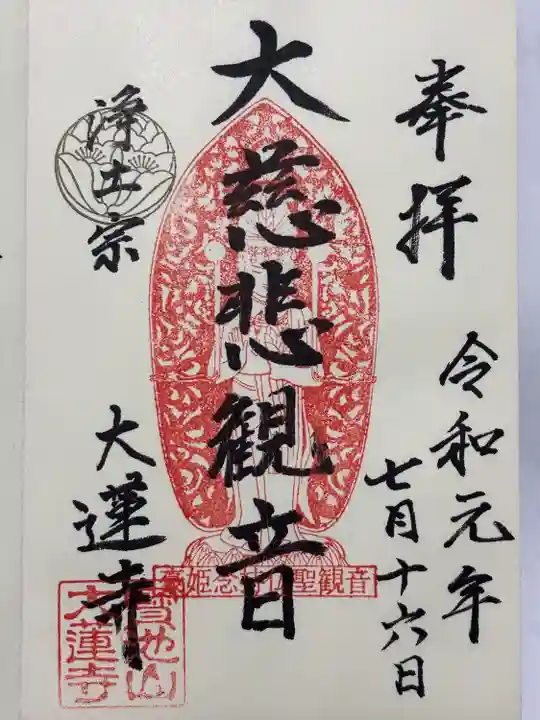 奉拝
令和元年
七月十六日
大慈悲観音
浄土宗
大蓮寺
姫念持仏聖観音
寳池山
大蓮寺